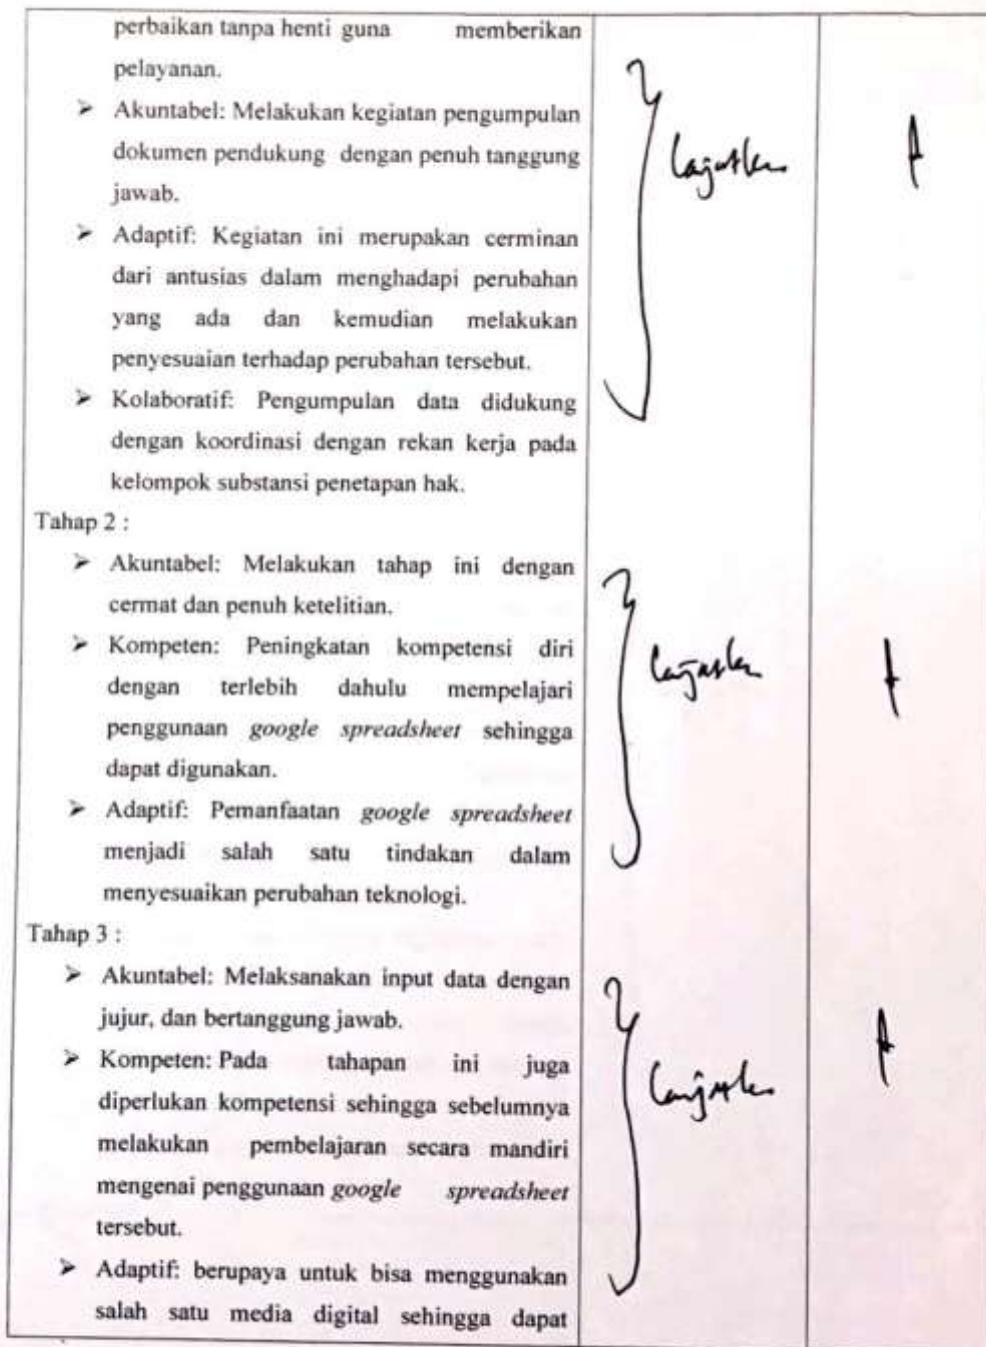 perbaikan tanpa henti guna memberikan
pelayanan.
➤ Akuntabel: Melakukan kegiatan pengumpulan
dokumen pendukung dengan penuh tanggung
jawab.
➤ Adaptif: Kegiatan ini merupakan cerminan
dari antusias dalam menghadapi perubahan
yang ada dan kemudian melakukan
penyesuaian terhadap perubahan tersebut.
➤ Kolaboratif: Pengumpulan data didukung
dengan koordinasi dengan rekan kerja pada
kelompok substansi penetapan hak.
Tahap 2 :
➤ Akuntabel: Melakukan tahap ini dengan
cermat dan penuh ketelitian.
➤ Kompeten: Peningkatan kompetensi diri
dengan terlebih dahulu mempelajari
penggunaan google spreadsheet sehingga
dapat digunakan.
➤ Adaptif: Pemanfaatan google spreadsheet
menjadi salah satu tindakan dalam
menyesuaikan perubahan teknologi.
Tahap 3 :
➤ Akuntabel: Melaksanakan input data dengan
jujur, dan bertanggung jawab.
➤ Kompeten: Pada tahapan ini juga
diperlukan kompetensi sehingga sebelumnya
melakukan pembelajaran secara mandiri
mengenai penggunaan google spreadsheet
tersebut.
➤ Adaptif: berupaya untuk bisa menggunakan
salah satu media digital sehingga dapat